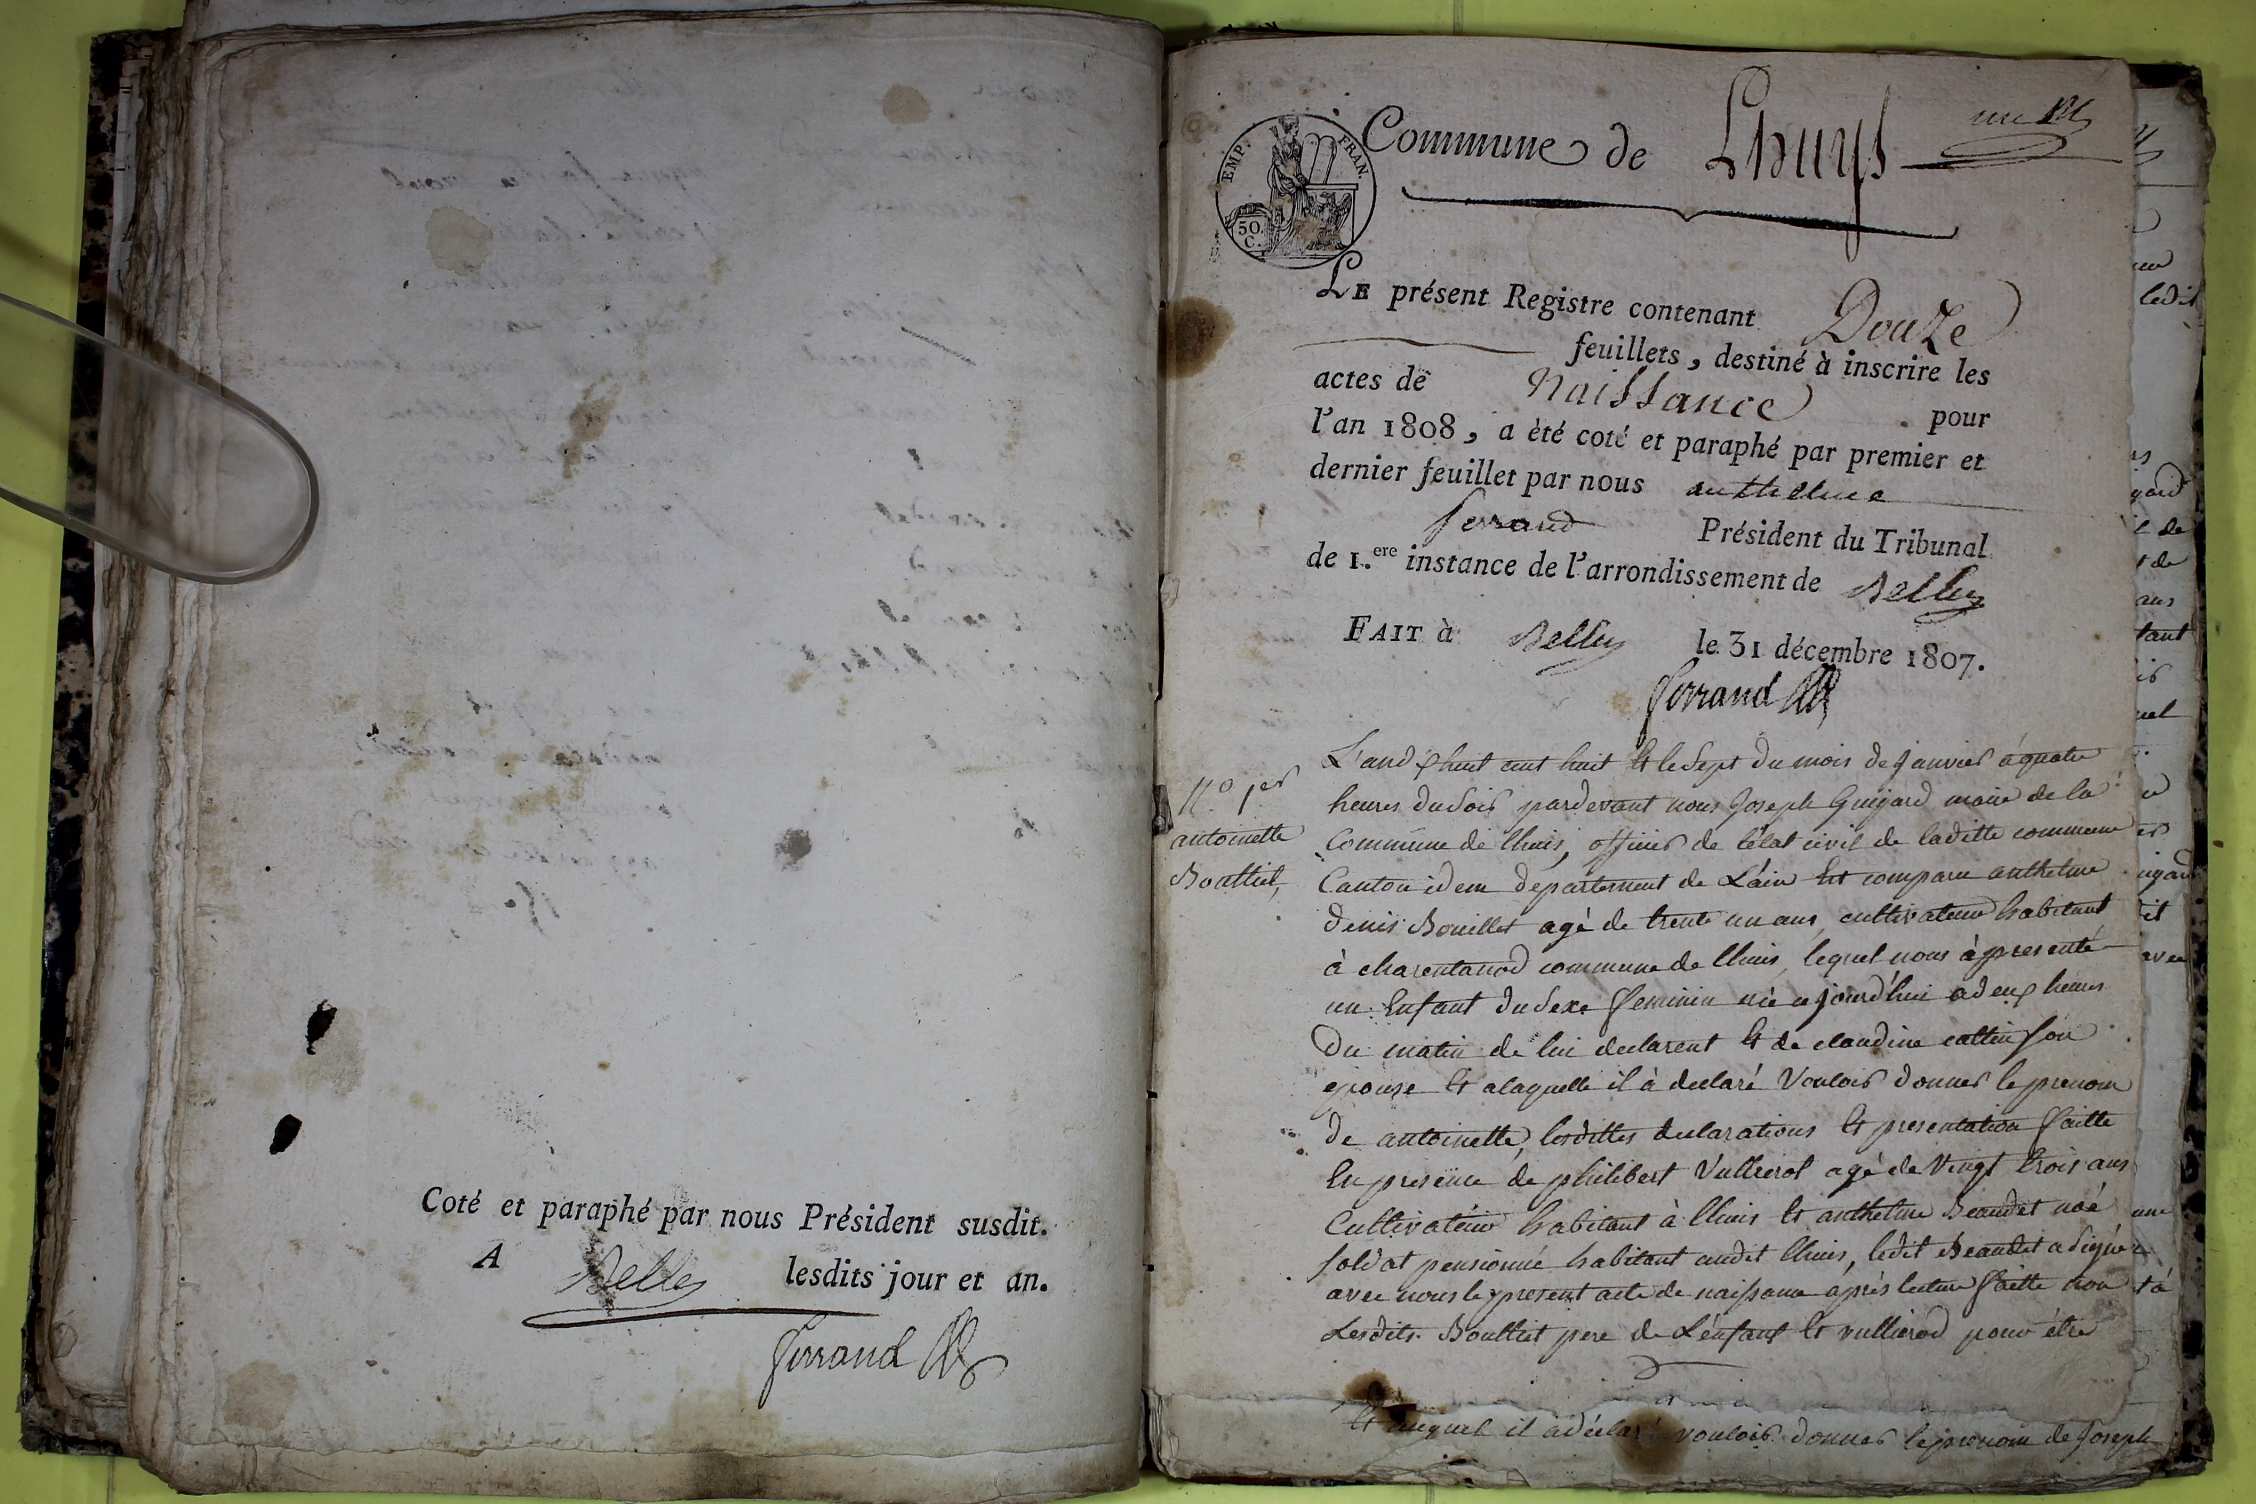 Coté et paraphé par nous Président susdit.
A Belley lesdits jour et an.
Ferrand
un
Commune de Lhuys
EMP. FRAN.
50.
C.
LE présent Registre contenant Douze
feuillets, destiné à inscrire les
actes de Naissance pour
l'an 1808, a été coté et paraphé par premier et
dernier feuillet par nous anthelme
ferrand Président du Tribunal
de 1.ere instance de l'arrondissement de Belley
FAIT à Belley le 31 décembre 1807.
Ferrand
N.o 1er
antoinette
Bouttiet,
L'an dix huit cent huit Et le Sept du mois de janvier à quatre
heures du Soir pardevant nous Joseph Guigard maire de la
Commune de lhuis, officier de l'état civil de laditte commune
Canton idem departement de L'ain Est comparu anthelme
denis Bouillet agé de trente un ans, cultivateur habitant
à charentanod commune de lhuis, lequel nous à presenté
un Enfant du Sexe feminin né ce jourd'hui a deux heures
Du matin de lui declarent Et de claudine cattin son
epouse Et a laquelle il à declaré Vouloir donner le prenom
de antoinette, lesdittes declarations Et presentation faitte
En presence de philibert Vullierot agé de Vingt trois ans
Cultivateur habitant à lhuis Et anthelme Beaudet noé
soldat pensionné habitant audit lhuis, ledit Beaudet a signer
avec nous le present acte de naissance après lecture faitte non
Lesdits Bouttiet pere de L'enfant Et vullierod pour être
Et auquel il a déclaré vouloir donner le prenom de Joseph